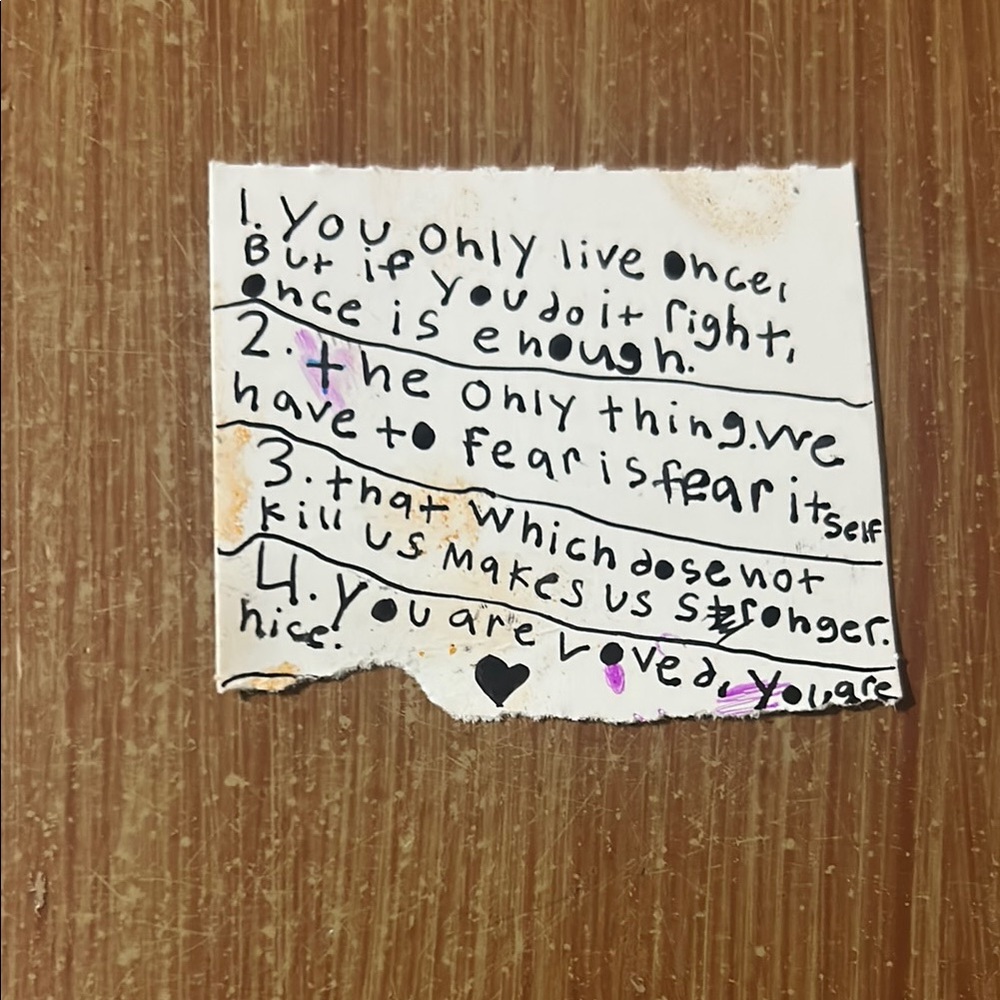 1. You only live once,
But if you do it right,
Once is enough.
2. the only thing.we
have to fear is fear itself
3. that which dose not
kill us makes us stronger.
4. you are Loved, you are
nice.